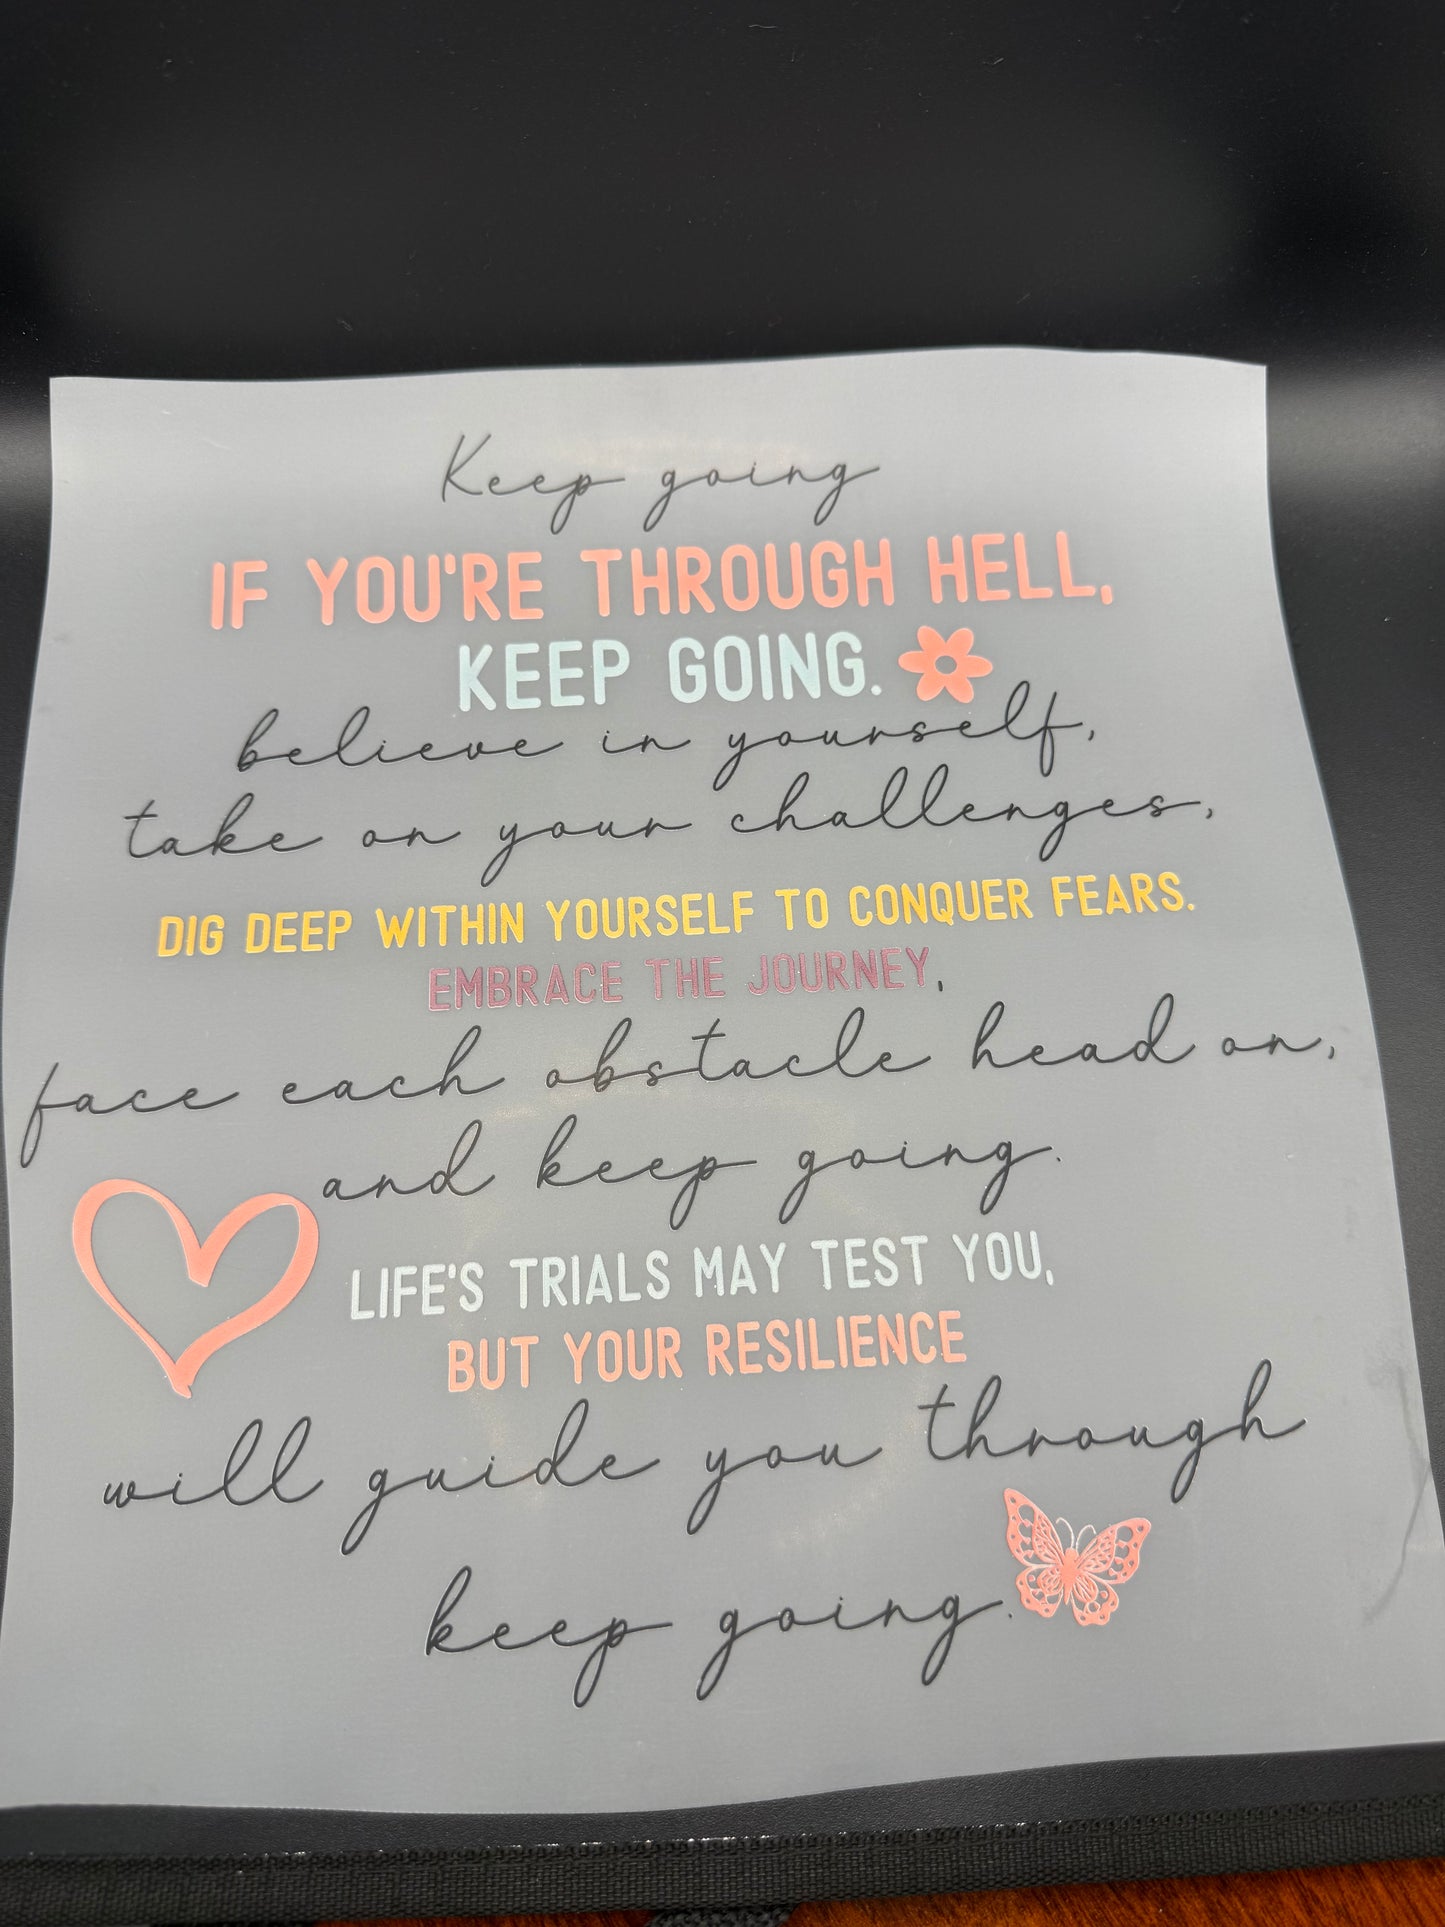 Keep going
IF YOU'RE THROUGH HELL,
KEEP GOING.
believe in yourself,
take on your challenges,
DIG DEEP WITHIN YOURSELF TO CONQUER FEARS.
EMBRACE THE JOURNEY,
face each obstacle head on,
and keep going.
LIFE'S TRIALS MAY TEST YOU,
BUT YOUR RESILIENCE
will guide you through
keep going.